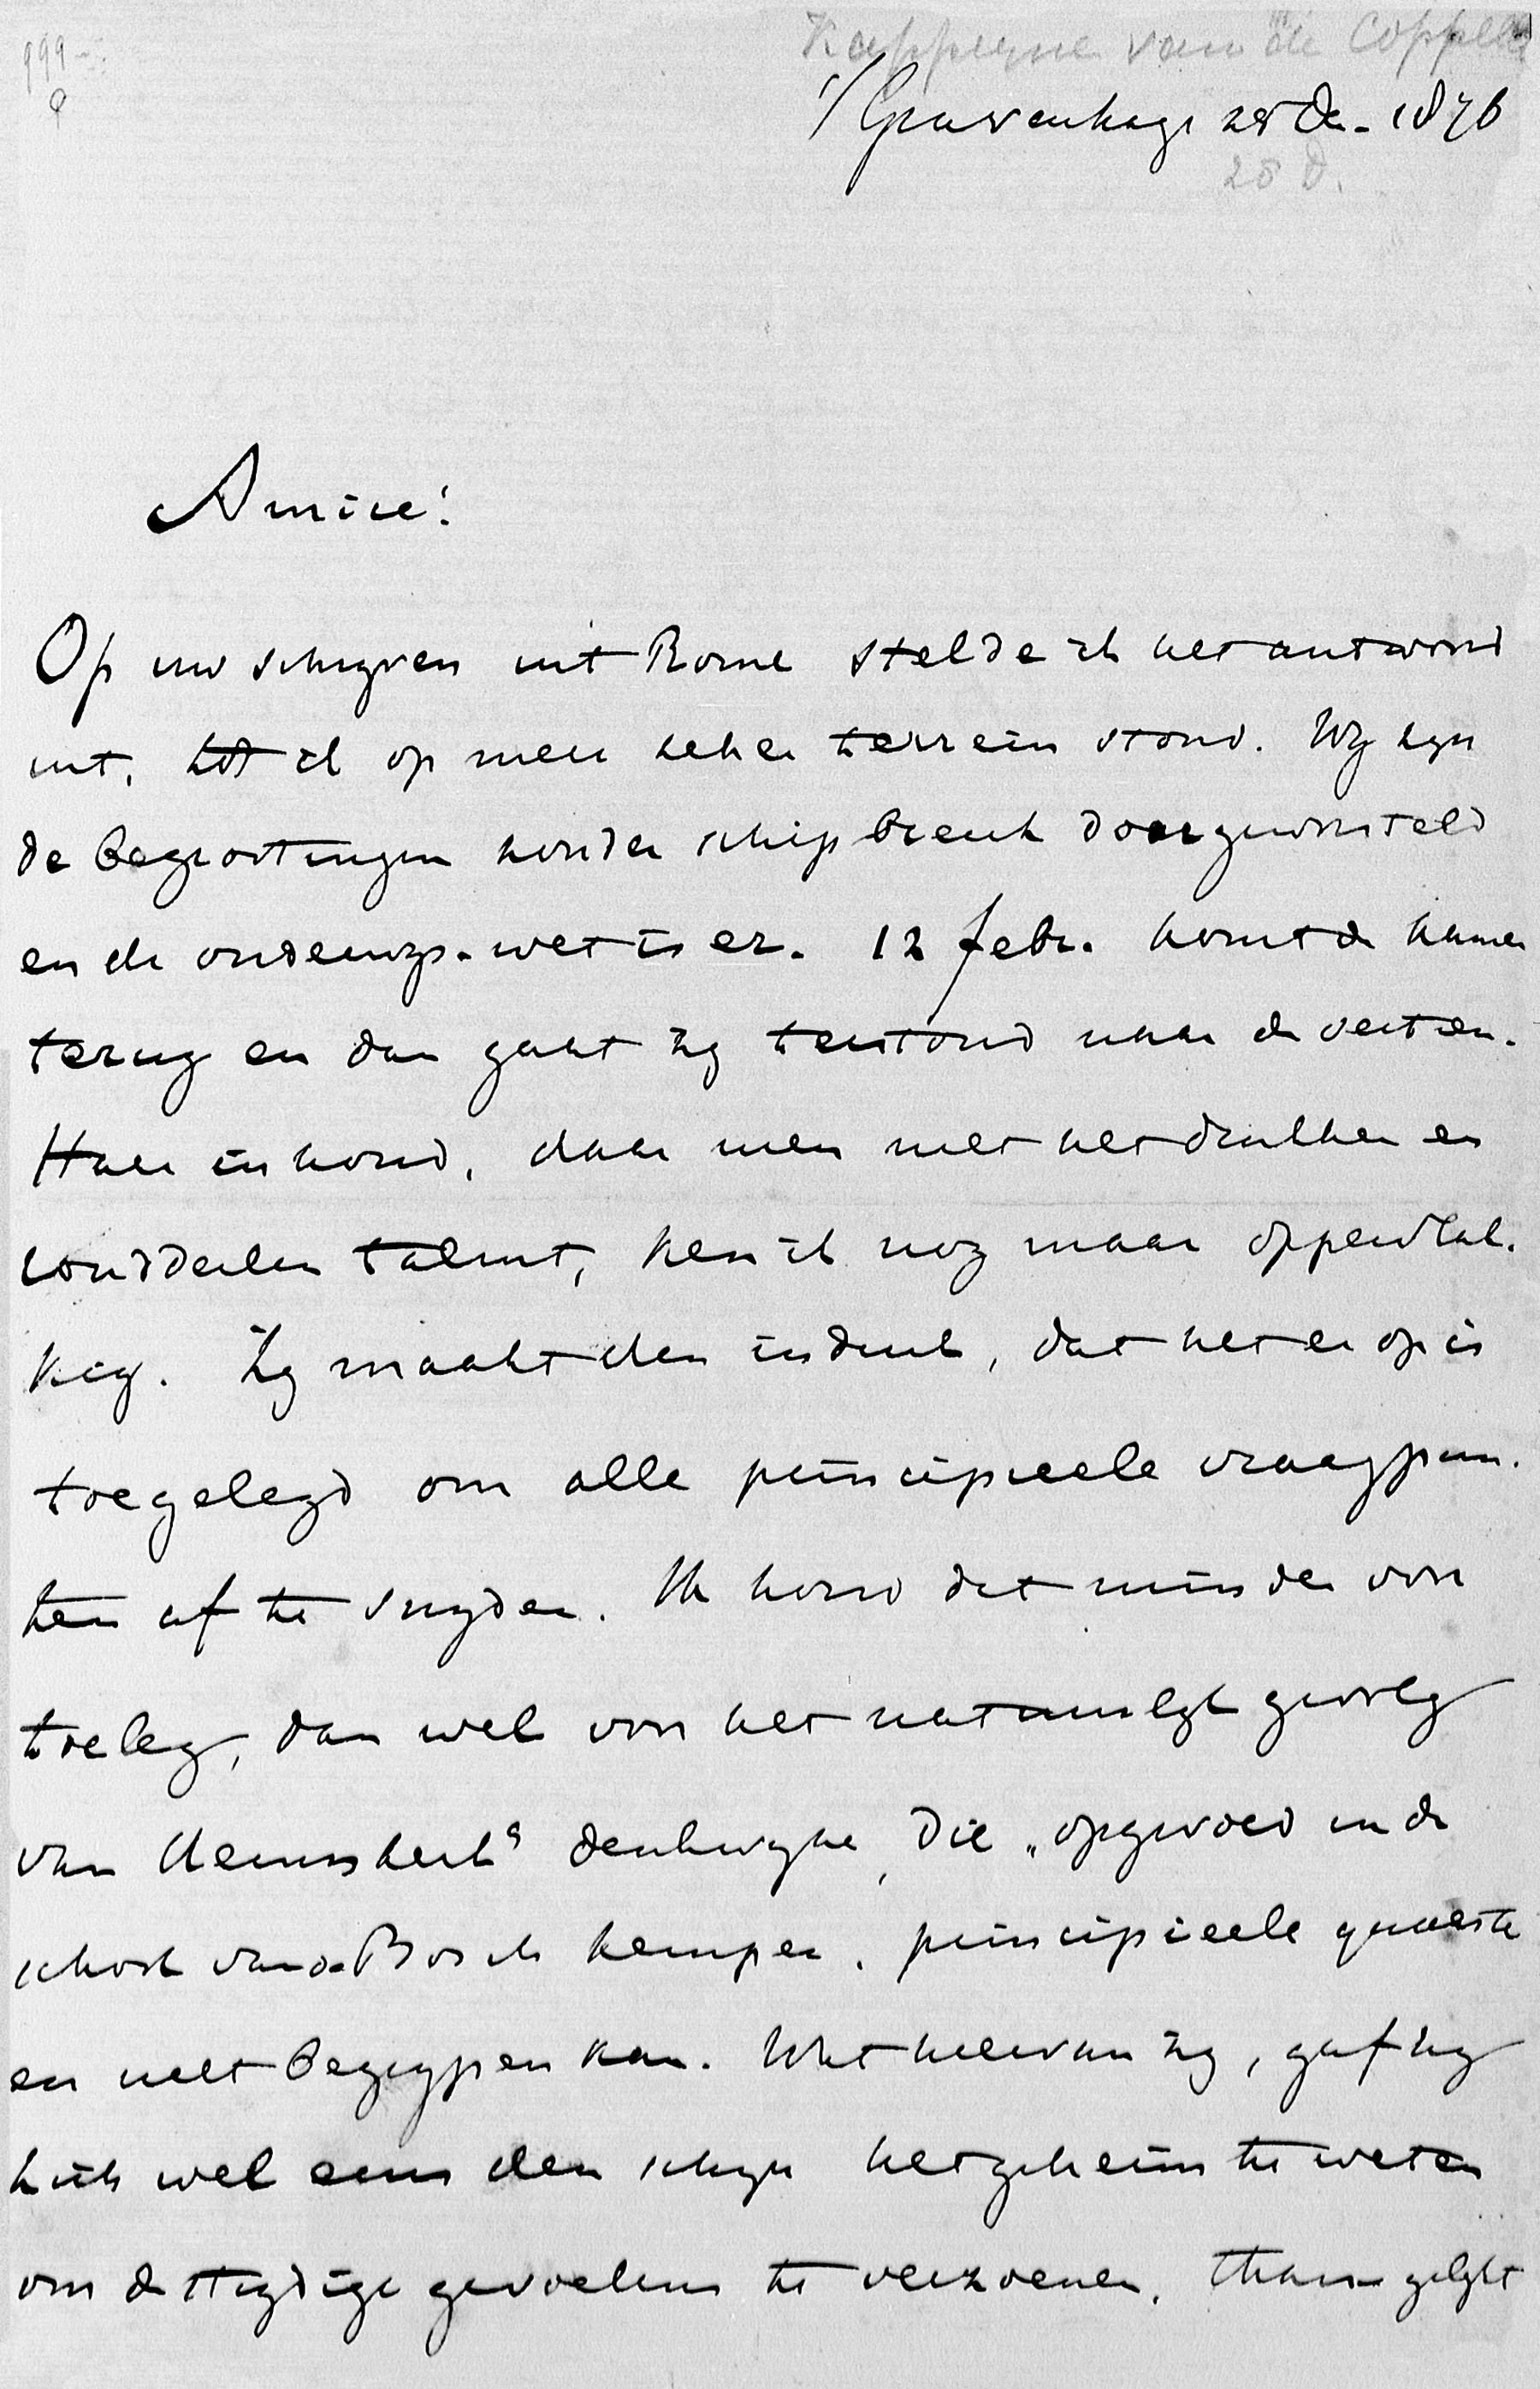 Kappeyne van de Coppello
999
9
's Gravenhage 28 Dec. 1876
28 D.
Amice!
Op uw schrijven uit Rome stelde ik het antwoord
uit, tot ik op meer zeker terrein stond. Wij zijn
de begrootingen zonder schipbreuk doorgeworsteld
en de onderwijs-wet is er. 12 febr. komt de Kamer
terug en dan gaat zij terstond naar de sectien.
Haar inhoud, daar men met het drukken en
ronddeelen talmt, ken ik nog maar oppervlak.
kig. Zij maakt den indruk, dat het er op is
toegelegd om alle principieele vraagpun.
ten af te snijden. Ik houd dat minder voor
toeleg, dan wel voor het natuurlijk gevolg
van Heemskerk's denkwijze, die "opgevoed in de
school van de Bosch Kemper, principieele quaestie
en niet begrijpen kan. Wat hiervan zij, gaf hij
zich wel eens den schijn het geheim te weten
om de strijdige gevoelens te verzoenen, thans gelijkt